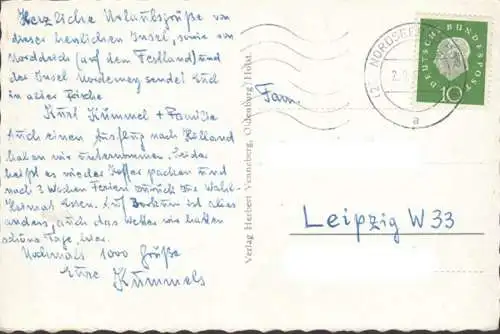 Herzliche Urlaubsgrüße von
dieser herrlichen Insel, sowie von
Norddeich (auf dem Festland) und
der Insel Norderney sendet Euch
in alter Frische
Kurt Kümmel + Familie
Auch einen Ausflug nach Holland
haben wir unternommen. Leider
heißt es wieder Koffer packen und
nach 3 Wochen Ferien zurück zur Wahl-
heimat Essen. Auf Borkum ist alles
anders, auch das Wetter, wir hatten
schöne Tage, hier.
Nochmals 1000 Grüße
Eure Kümmels
Verlag Herbert Venneberg, Oldenburg/Holst.
NORDSEE
a
DEUTSCHE BUNDESPOST
10
Fam.
Leipzig W 33